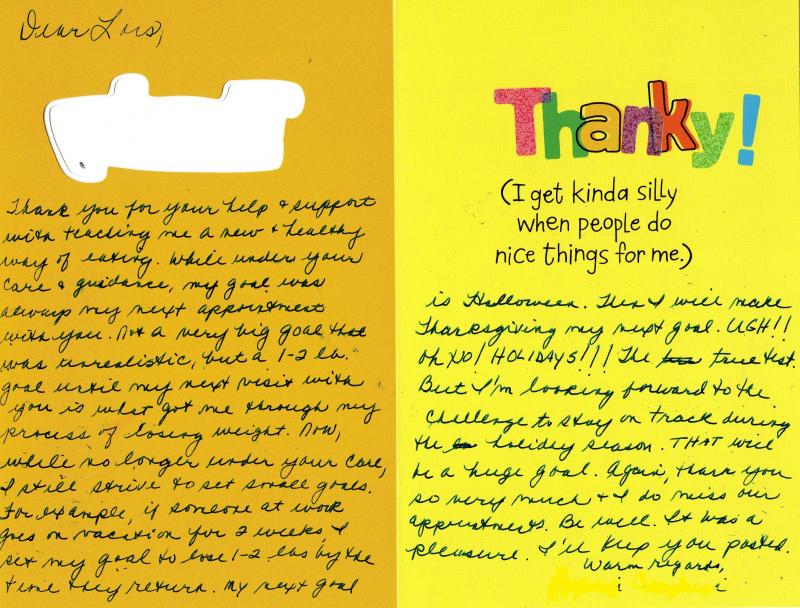 Dear Lois,
Thank you for your help & support
with teaching me a new & healthy
way of eating. While under your
care & guidance, my goal was
always my next appointment
with you. Not a very big goal that
was unrealistic, but a 1-2 lb.
goal until my next visit with
you is what got me through my
process of losing weight. Now,
while no longer under your care,
I still strive to set small goals.
For example, if someone at work
goes on vacation for 2 weeks I
set my goal to lose 1-2 lbs by the
time they return. My next goal
Thanky!
(I get kinda silly
when people do
nice things for me.)
is Halloween. Then I will make
Thanksgiving my next goal. UGH!!
Oh NO! HOLIDAYS!!! The true test.
But I'm looking forward to the
challenge to stay on track during
the holiday season. THAT will
be a huge goal. Again, thank you
so very much & I do miss our
appointments. Be well. It was a
pleasure. I'll keep you posted.
Warm regards,